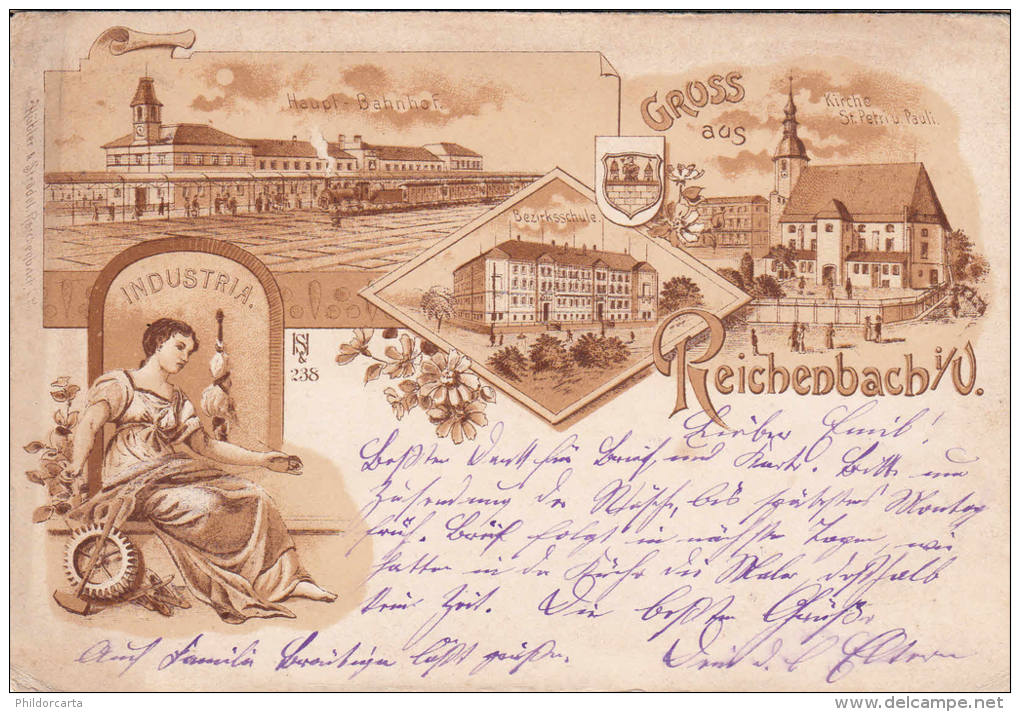 Haupt-Bahnhof.
GRUSS
aus
Kirche
St. Petri u. Pauli.
Bezirksschule.
INDUSTRIA.
N
S
&
238
Reichenbach i/V.
Lieber Emil!
Besten Dank für Brief und Karte. Bitte um
Zusendung der Wäsche, bis spätestens Montag
früh. Brief folgt in nächsten Tagen, wir
hatten in der Küche die Maler, deßhalb
kein Zeit. Die besten Grüße
Dein d. l. Eltern
Auch Familie Bräutigam läßt grüßen.
Phildorcarta
www.delcampe.net